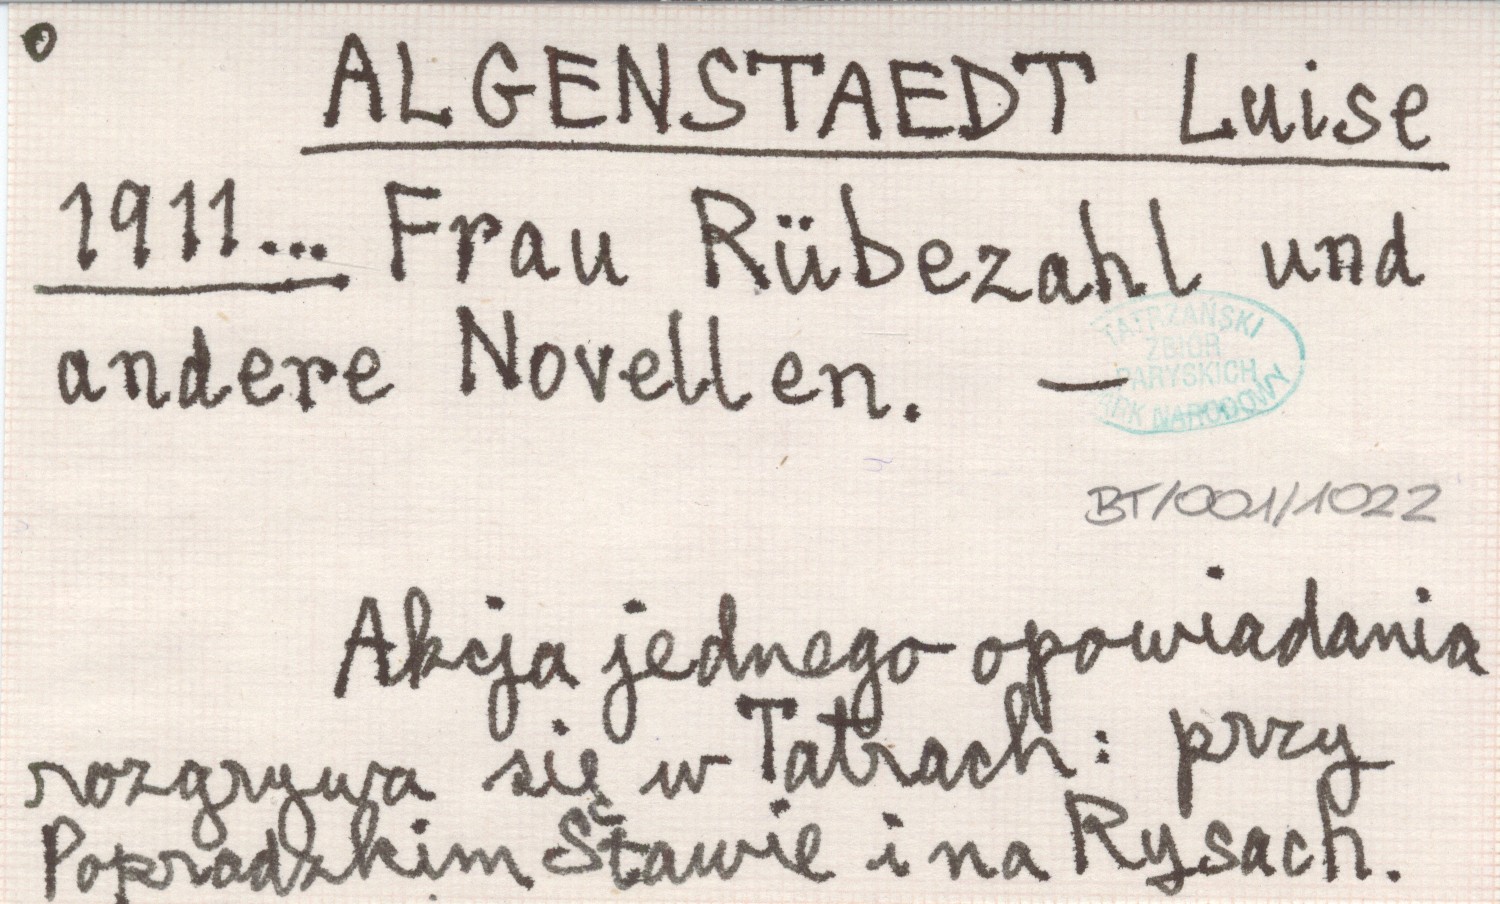 ALGENSTAEDT Luise
1911... Frau Rübezahl und
andere Novellen. —
TATRZAŃSKI
ZBIÓR
PARYSKICH
PARK NARODOWY
BT/001/1022
Akcja jednego opowiadania
rozgrywa się w Tatrach: przy
Popradzkim Stawie i na Rysach.